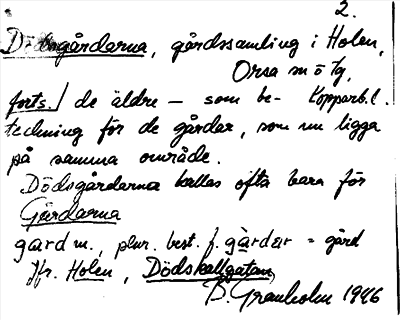 2.
Dödsgårdarna, gårdssamling i Holen,
Orsa sn ö tg,
forts./ de äldre – som be- Kopparb. l.
teckning för de gårdar, som nu ligga
på samma område.
Dödsgårdarna kallas ofta bara för
Gårdarna
gard m., plur. best. f. gàrdar = gård
Jfr. Holen, Dödskallgatan
B. Granholm 1946